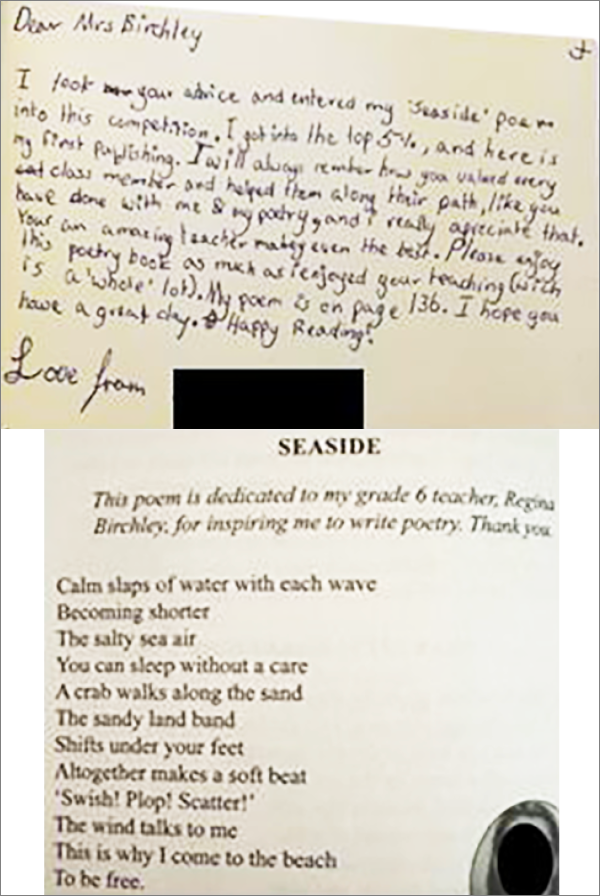 Dear Mrs Birchley
I took your advice and entered my 'Seaside' poem
into this competition. I got into the top 5%, and here is
my first publishing. I will always rember how you valued every
class member and helped them along their path, like you
have done with me & my poetry, and i really apreciate that.
Your an amazing teacher maby even the best. Please enjoy
this poetry book as much as i enjoyed your teaching (wich
is a 'whole' lot). My poem is on page 136. I hope you
have a great day. Happy Reading!
Love from
SEASIDE
This poem is dedicated to my grade 6 teacher, Regina
Birchley, for inspiring me to write poetry. Thank you
Calm slaps of water with each wave
Becoming shorter
The salty sea air
You can sleep without a care
A crab walks along the sand
The sandy land band
Shifts under your feet
Altogether makes a soft beat
'Swish! Plop! Scatter!'
The wind talks to me
This is why I come to the beach
To be free.